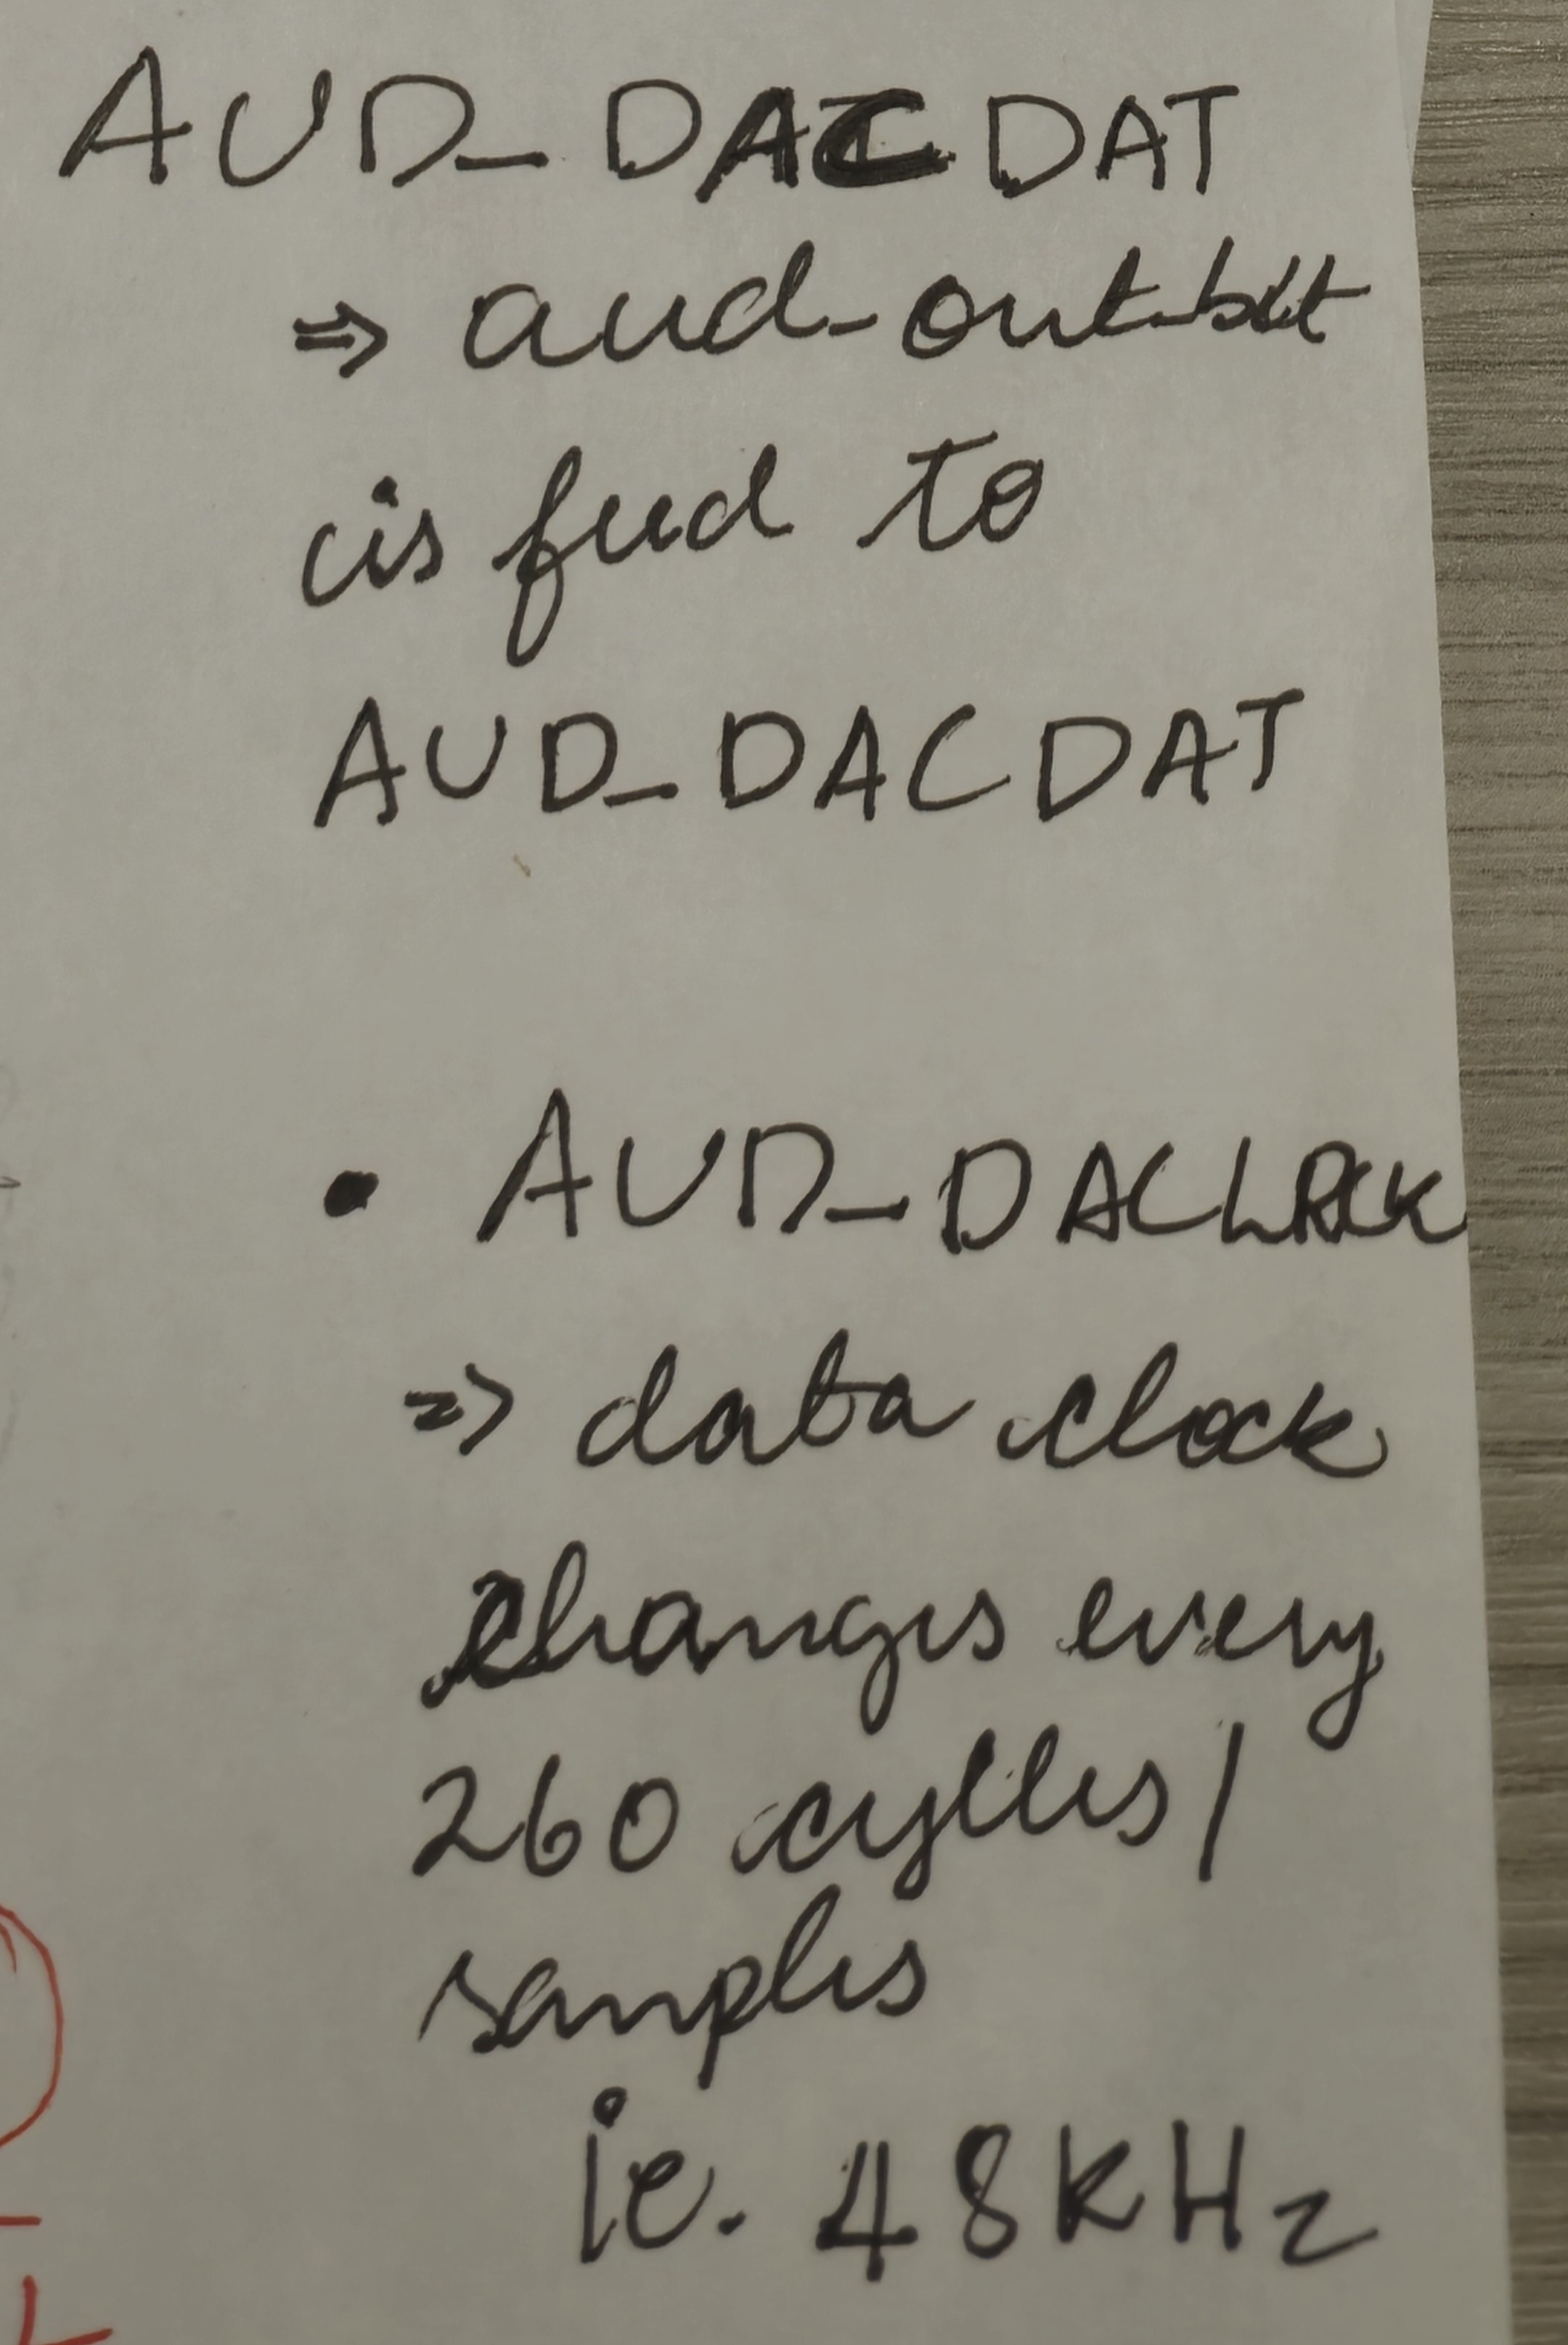 AUD_DACDAT
⇒ aud_out_bit
is fed to
AUD_DACDAT
• AUD_DACLRCK
⇒ data clock
changes every
260 cycles/
samples
ie. 48KHz